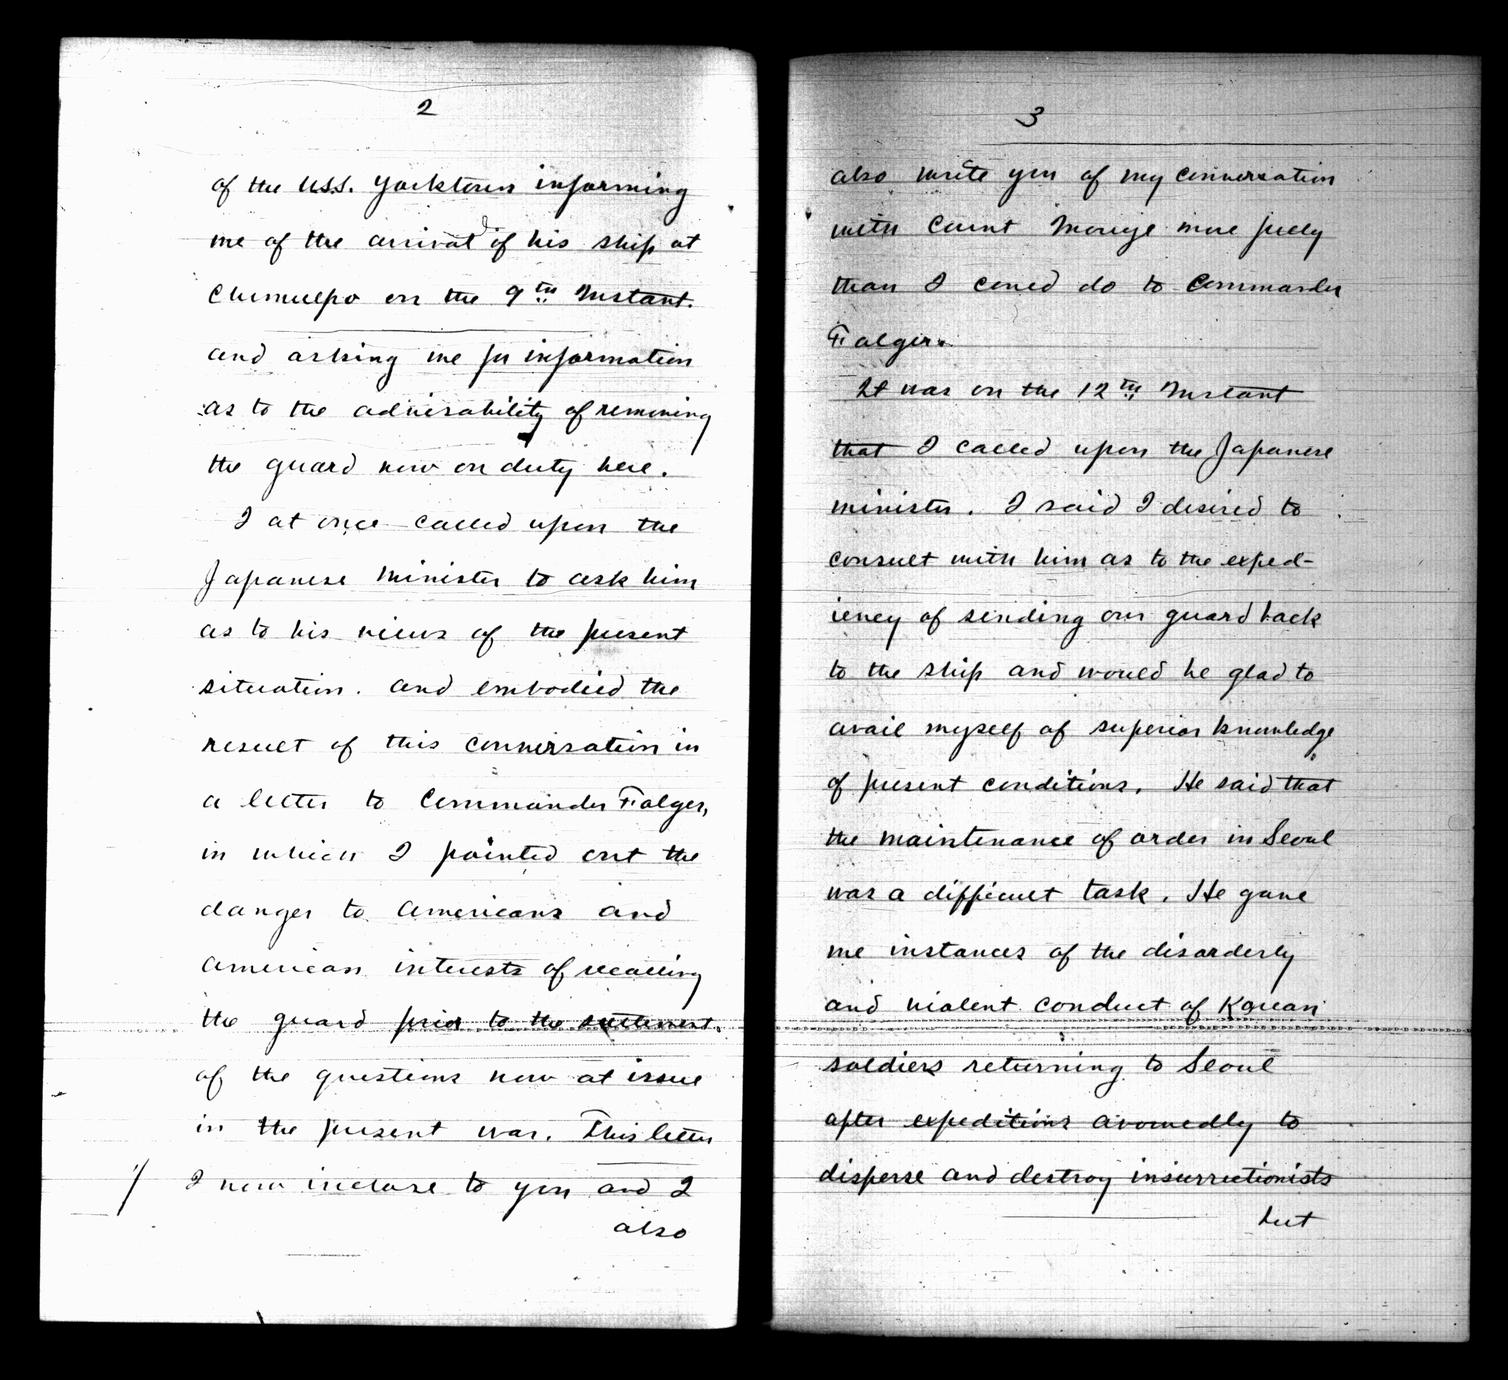 2
of the U.S.S. Yorktown informing
me of the arrival of his ship at
Chemulpo on the 9th Instant.
and asking me for information
as to the advisability of removing
the guard now on duty here.
I at once called upon the
Japanese Minister to ask him
as to his views of the present
situation. and embodied the
result of this conversation in
a letter to Commander Folger,
in which I pointed out the
danger to Americans and
American interests of recalling
the guard prior to the settlement
of the questions now at issue
in the present war. This letter
1/ I now inclose to you and I
also
3
also write you of my conversation
with Count Inouye more fully
than I could do to Commander
Folger.
It was on the 12th Instant
that I called upon the Japanese
minister. I said I desired to
consult with him as to the exped-
iency of sending our guard back
to the ship and would be glad to
avail myself of superior knowledge
of present conditions. He said that
the maintenance of order in Seoul
was a difficult task. He gave
me instances of the disorderly
and violent conduct of Korean
soldiers returning to Seoul
after expeditions avowedly to
disperse and destroy insurrectionists
but